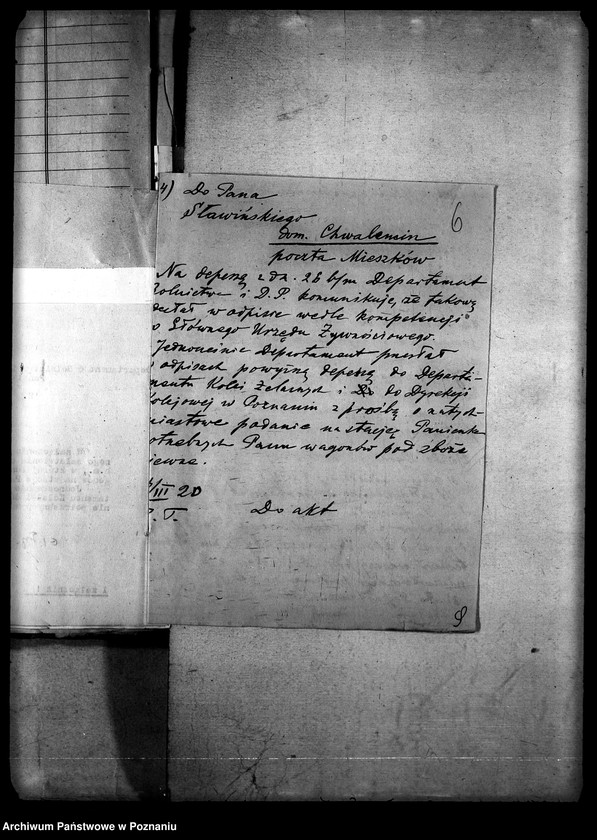 4) Do Pana
Sławińskiego
dom. Chwalencin
poczta Mieszków
6
Na depeszę z dn. 26 b/m Departament
Rolnictwa i D.P. komunikuję, że takową
w odpisie wedle kompetencji
o Głównego Urzędu Żywnościowego.
Jednocześnie Departament przesłał
odpisach powyższą depeszę do Departa-
mentu Kolei Żelaznych i do Dyrekcji
olejowej w Poznaniu z prośbą o natych-
miastowe podanie na stację Panienka
otrzebnych Panu wagonów pod zboże
iewne.
/III 20
. T.
Do akt
Archiwum Państwowe w Poznaniu